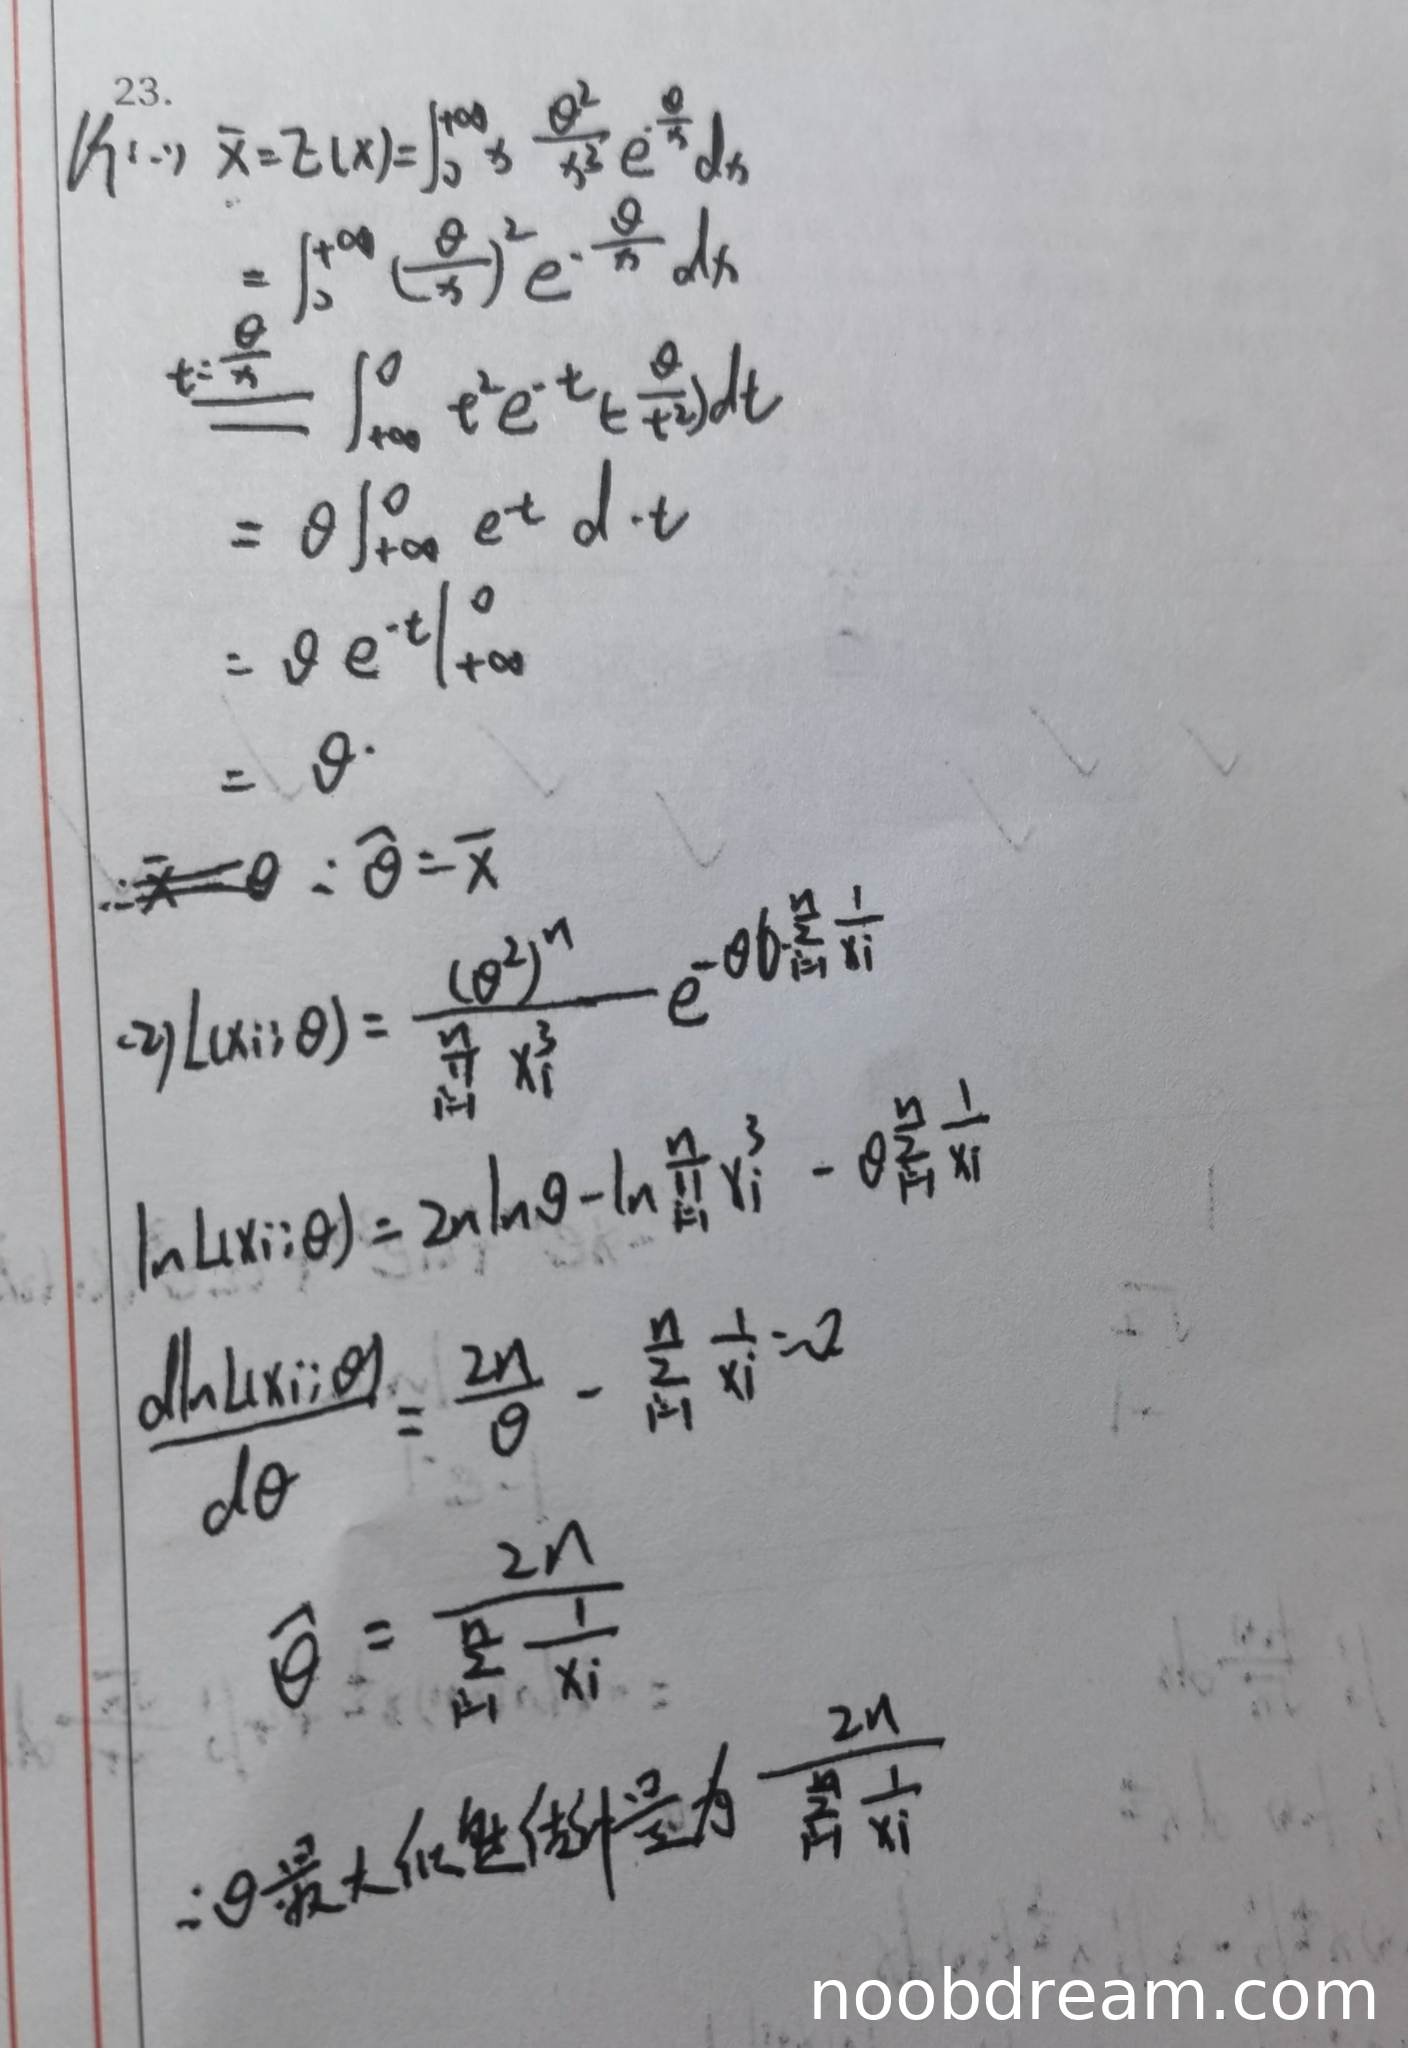 23.
解:(1) x̄ = E(X) = ∫₀^{+∞} x θ²/x³ e^{-θ/x} dx
= ∫₀^{+∞} (θ/x)² e^{-θ/x} dx
t=θ/x = ∫_{+∞}^0 t² e^{-t} (-θ/t²) dt
= θ ∫_{+∞}^0 e^{-t} d-t
= θ e^{-t} |_{+∞}^0
= θ.
∴ θ̂ = X̄
(2) L(xi;θ) = (θ²)ⁿ / ∏_{i=1}^n xi³ e^{-θ ∑_{i=1}^n 1/xi}
ln L(xi;θ) = 2n ln θ - ln ∏_{i=1}^n xi³ - θ ∑_{i=1}^n 1/xi
d ln L(xi;θ) / dθ = 2n/θ - ∑_{i=1}^n 1/xi = 0
θ̂ = 2n / ∑_{i=1}^n 1/xi
∴ θ最大似然估计量为 2n / ∑_{i=1}^n 1/xi
noobdream.com